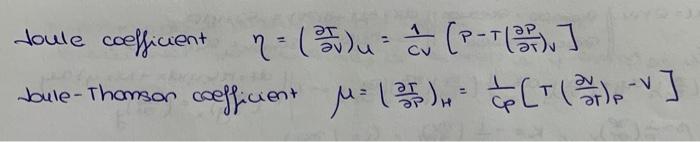 Joule coefficient η = (∂T/∂V)u = 1/Cv [P-T(∂P/∂T)v]
Joule-Thomson coefficient μ = (∂T/∂P)H = 1/Cp [T(∂V/∂T)P -V]